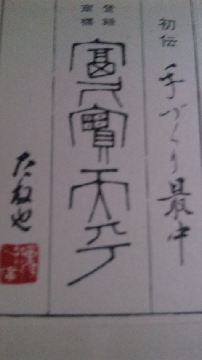 初伝
手づくり最中
登録
商標
富久實天平
たねや